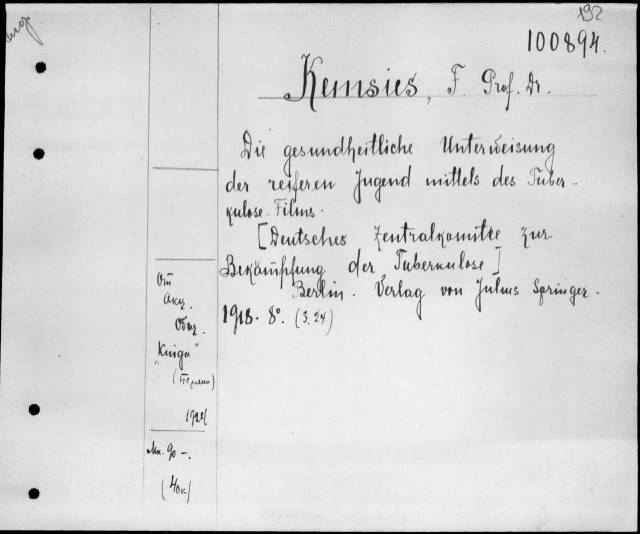 192
100894.
Kemsies, F. Prof. Dr.
Die gesundheitliche Unterweisung
der reiferen Jugend mittels des Tuber-
kulose-Films.
[Deutsches Zentralkomitee zur
Bekämpfung der Tuberkulose]
Berlin. Verlag von Julius Springer.
1918. 8°. (S. 24)
От
Акц.
Общ.
"Kniga"
(Берлин)
Мк. 90 -.
(40к)